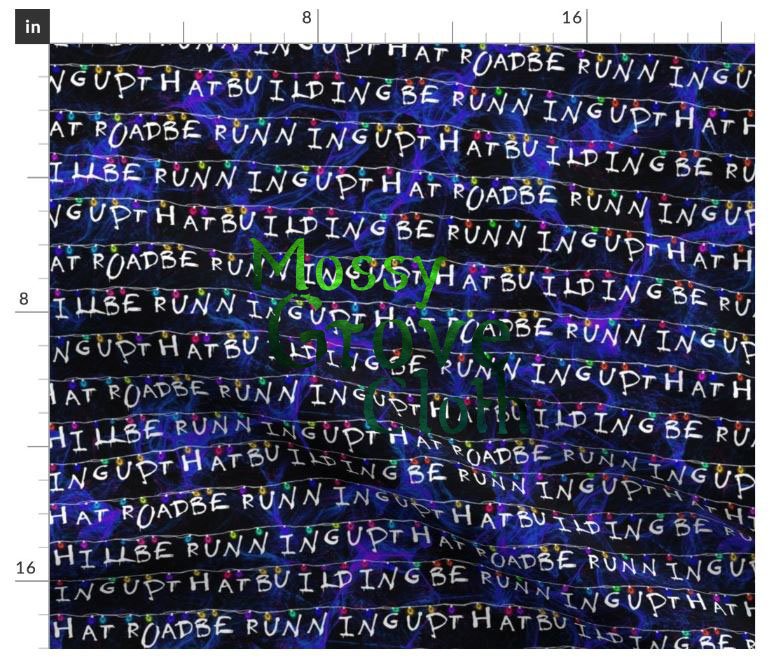 in 8 16
INGUPTHAT ROADBE RUNN INGU
NGUPTHATBUILDINGBE RUNN INGUPTHAT H
AT ROADBE RUNN INGUPTHATBUILDINGBE RU
ILLBE RUNN INGUPTHAT ROADBE RUNN ING
NGUPTHATBUILDINGBE RUNN INGUPTHAT H
AT ROADBE RUNN INGUPTHATBUILDINGBE RU
Mossy
8
ILLBE RUNN INGUPTHAT ROADBE RUNN INGU
Grove
NGUPTHATBUILDINGBE RUNN INGUPTHAT H
HAT ROADBE RUNN INGUPTHATBUILDINGBE RU
Cloth
HILLBE RUNN INGUPTHAT ROADBE RUNN INGUP
INGUPTHATBUILDINGBE RUNN INGUPTHAT HI
HAT ROADBE RUNN INGUPTHATBUILDINGBE RU
HILLBE RUNN INGUPTHAT ROADBE RUNN INGU
16
INGUPTHATBUILDINGBE RUNN INGUPTHAT H
HAT ROADBE RUNN INGUPTHATBUILDINGBE R